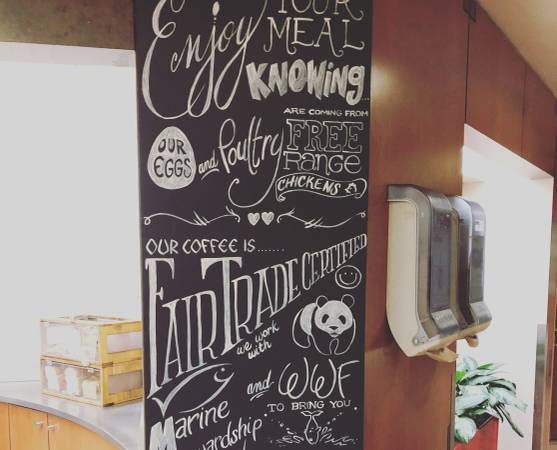 Enjoy YOUR
MEAL
KNOWING...
ARE COMING FROM
OUR EGGS and Poultry FREE
Range
CHICKENS
OUR COFFEE IS.......
FAIR TRADE CERTIFIED
we work
with
Marine
and WWF
TO BRING YOU